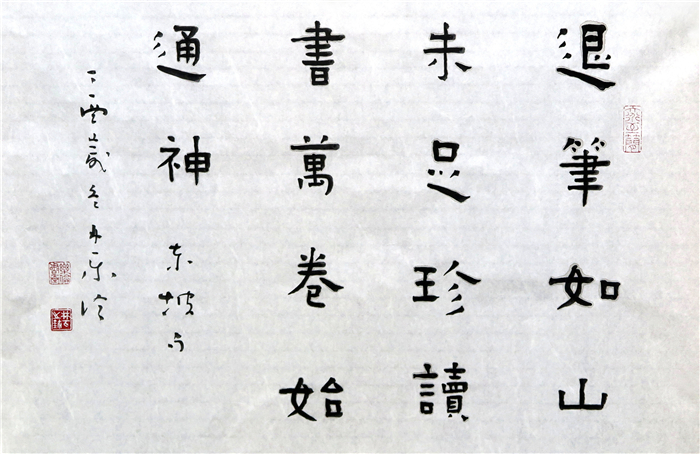 退筆如山
未足珍讀
書萬卷始
通神 东坡句
丁酉歲冬月